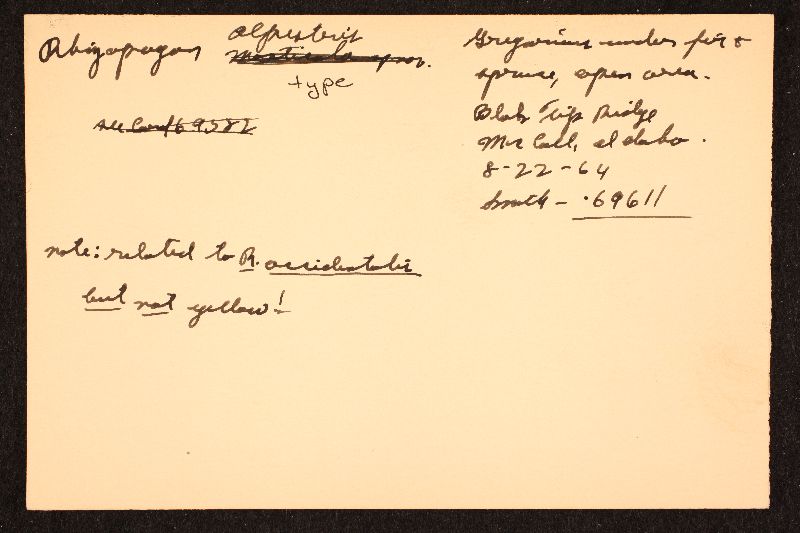 Rhizopogon alpestris
monticola sp nov.
type
see Card 69582
Gregarious under fir &
spruce, open area.
Slab Trip Ridge
Mc Call, Idaho.
8-22-64
Smith - 69611
note: related to R. occidentalis
but not yellow!